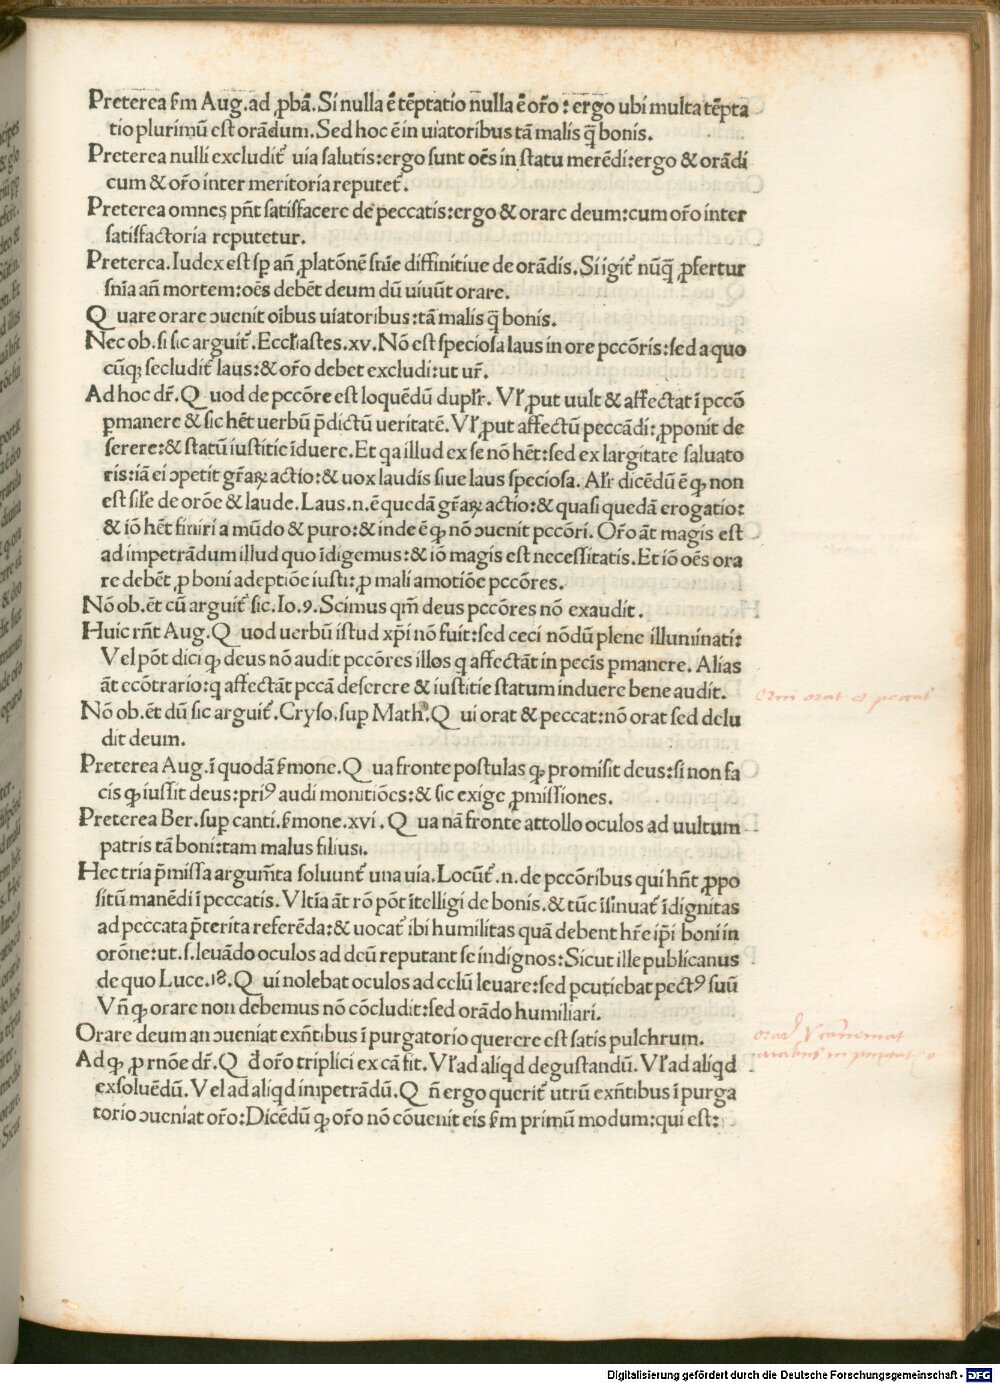 Preterea ẜm Aug. ad ꝓbã. Si nulla ẽ tẽptatio nulla ẽ or̃o: ergo ubi multa tẽpta
tio plurimũ est orãdum. Sed hoc ẽ in uiatoribus tã malis q̃ bonis.
Preterea nulli excludit᷑ uia salutis: ergo sunt oẽs in statu merẽdi: ergo & orãdi
cum & or̃o inter meritoria reputet᷑.
Preterea omnes pñt satisfacere de peccatis: ergo & orare deum: cum or̃o inter
satisfactoria reputetur.
Preterea. Iudex est sꝑ añ ꝓlatõnẽ sñie diffinitiue de orãdis. Si igit᷑ nũq̃ ꝓfertur
sñia añ mortem: oẽs debẽt deum dũ uiuũt orare.
Quare orare ↄuenit oĩbus uiatoribus: tã malis q̃ bonis.
Nec ob. si sic arguit᷑. Eccĺiastes. xv. Nõ est speciosa laus in ore pccõris: sed a quo
cũqꝫ secludit᷑ laus: & or̃o debet excludi: ut ur̃.
Ad hoc dr̃. Quod de pccõre est loquẽdũ dupĺr. Vĺ ꝓut uult & affectat ĩ pccõ
ꝑmanere & sic hẽt uerbũ p̃dictũ ueritatẽ. Vĺ ꝓut affectũ peccãdi ꝓponit de
serere: & statũ iustitie ĩduere. Et qa illud ex se nõ hẽt: sed ex largitate saluato
ris: iã ei ↄpetit gr̃aꝝ actio: & uox laudis siue laus speciosa. Aĺr dicẽdũ ẽ ꝙ non
est siĺe de orõe & laude. Laus .n. ẽ quedã gr̃aꝝ actio: & quasi quedã erogatio:
& iõ hẽt finiri a mũdo & puro: & inde ẽ ꝙ nõ ↄuenit pccõri. Or̃o ãt magis est
ad impetrãdum illud quo ĩdigemus: & iõ magis est necessitatis. Et iõ oẽs ora
re debẽt, ꝓ boni adeptiõe iusti: ꝓ mali amotiõe pccõres.
Nõ ob. ẽt cũ arguit᷑ sic. Io. 9. Scimus qm̃ deus pccõres nõ exaudit.
Huic rñt Aug. Quod uerbũ istud xp̃i nõ fuit: sed ceci nõdũ plene illuminati:
Vel põt dici ꝙ deus nõ audit pccõres illos q affectãt in pecĩs ꝑmanere. Alias
ãt ecõtrario: q affectãt pccã deserere & iustitie statum induere bene audit.
Nõ ob. ẽt dũ sic arguit᷑. Cryso. suꝑ Math. Qui orat & peccat: nõ orat sed delu
dit deum.
Preterea Aug. ĩ quodã ẜmone. Qua fronte postulas ꝙ promisit deus: si non fa
cis ꝙ iussit deus: pri⁹ audi monitiões: & sic exige ꝓmissiones.
Preterea Ber. suꝑ canti. ẜmone. xvi. Qua nã fronte attollo oculos ad uultum
patris tã boni: tam malus filius.
Hec tria p̃missa argum̃ta soluunt᷑ una uia. Locũt᷑ .n. de pccõribus qui hñt ꝓpo
situm manẽdi ĩ peccatis. Vltĩa ãt rõ põt ĩtelligi de bonis. & tũc ĩsinuat᷑ ĩdignitas
ad peccata p̃terita referẽda: & uocat᷑ ibi humilitas quã debent hr̃e ip̃i boni in
orõne: ut .s. leuãdo oculos ad dcũ reputant se indignos: Sicut ille publicanus
de quo Luce. 18. Qui nolebat oculos ad celũ leuare: sed ꝑcutiebat pect⁹ suũ
Vñ ꝙ orare non debemus nõ cõcludit: sed orãdo humiliari.
Orare deum an ↄueniat exñtibus ĩ purgatorio querere est satis pulchrum.
Ad qꝫ, ꝓ rñõe dr̃. Qd̃ or̃o triplici ex cã fit. Vĺ ad aliqd degustandũ. Vĺ ad aliqd
exsoluẽdũ. Vel ad aliqd impetrãdũ. Qñ ergo querit᷑ utrũ exñtibus ĩ purga
torio ↄueniat or̃o: Dicẽdũ ꝙ or̃o nõ cõuenit eis ẜm primũ modum: qui est:
Qui orat et peccat
Digitalisierung gefördert durch die Deutsche Forschungsgemeinschaft - DFG